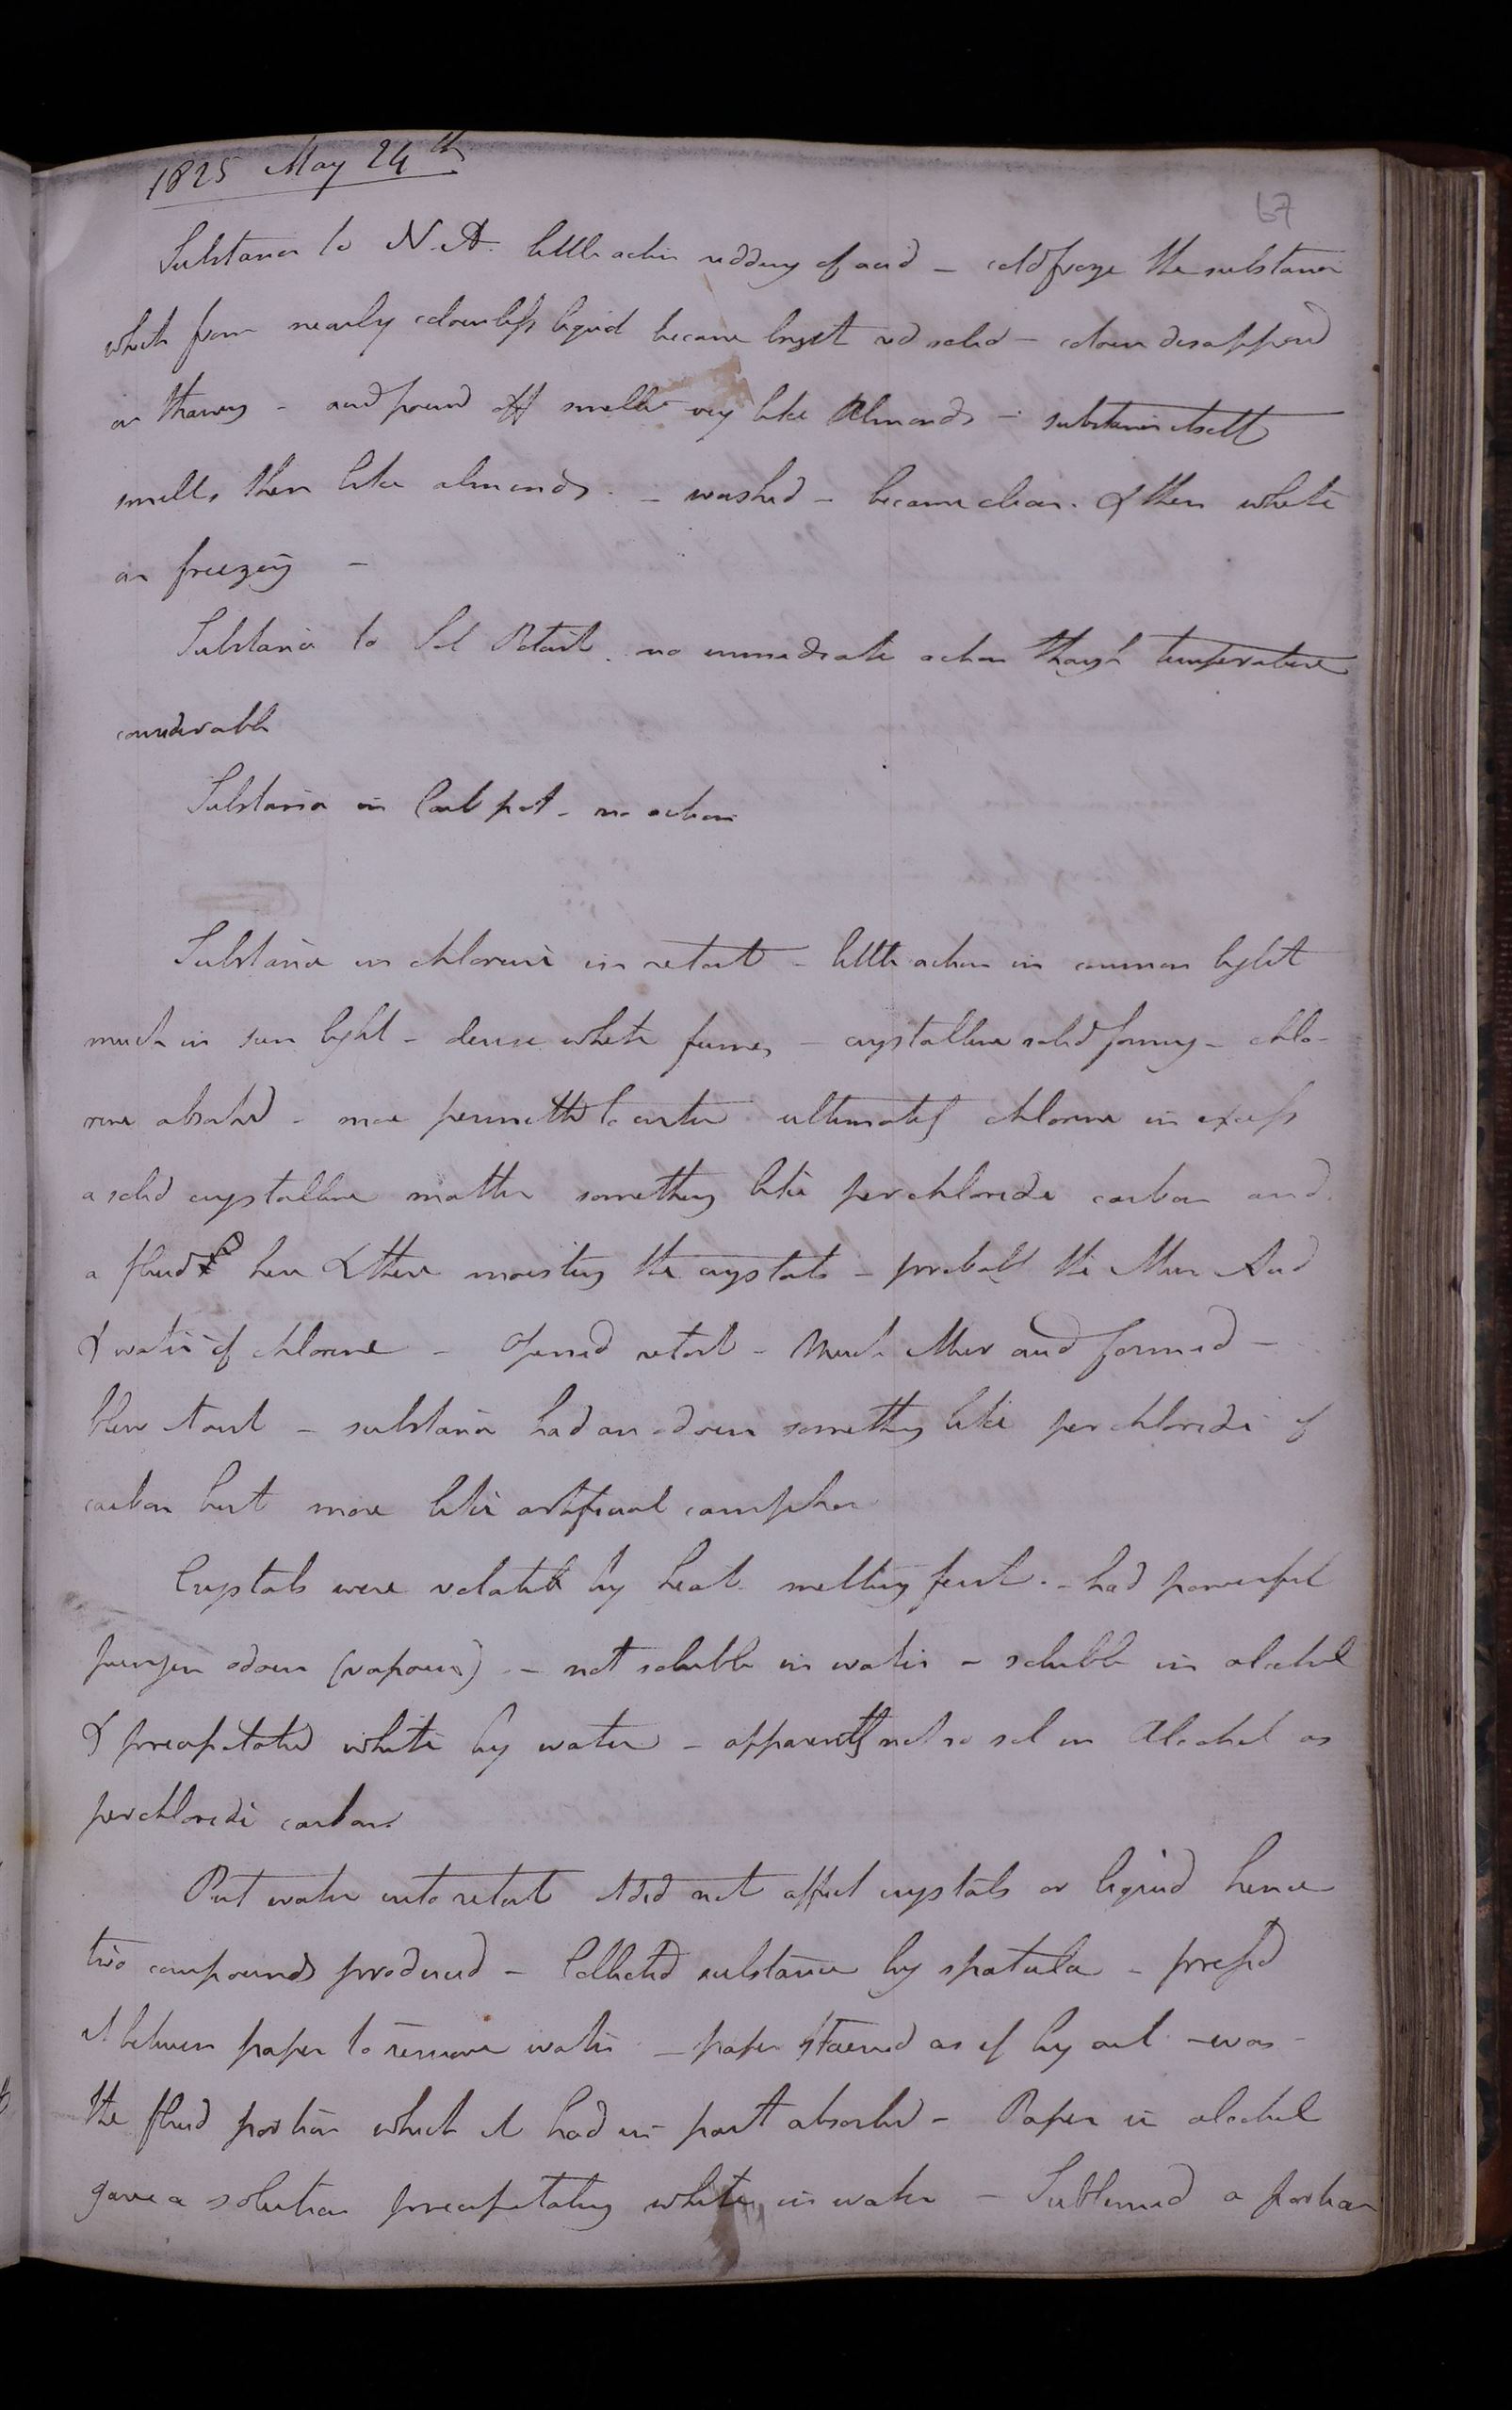 1825 May 24th
67
Substance to N. A. little action reddening of acid – cold froze the substance
which from nearly colourless liquid became bright red solid – colour disappeard
on thawing – and pourd off smells very like Almonds – substance itself
smells then like almonds. – washed – became clear. & then white
on freezing –
Substance to Sol Potash. no immediate action though temperature
considerable
Substance in Carb pot – no action
Substance in chlorine in retort – little action in common light
much in sun light – dense white fumes – crystalline solid forming – chlo-
rine absorbed – more permitted to enter ultimately chlorine in excess
a solid crystalline matter something like perchloride carbon and
a fluid here & there moistening the crystals – probably the Mur Acid
& water of chlorine – Opened retort – Much Mur acid formed –
blew it out – substance had an odour something like perchloride of
carbon but more like artificial camphor
Crystals were volatile by heat melting first. – had powerful
pungen odour (vapours) – not soluble in water – soluble in alcohol
& precipitated white by water – apparently not so sol in Alcohol as
perchloride carbon.
Put water into retort it did not affect crystals or liquid hence
two compounds produced – Collected substance by spatula – pressed
it between paper to remove water – paper stained as if by oil – was
the fluid portion which it had in part absorbed – Paper in alcohol
gave a solution precipitating white in water – Sublimed a portion